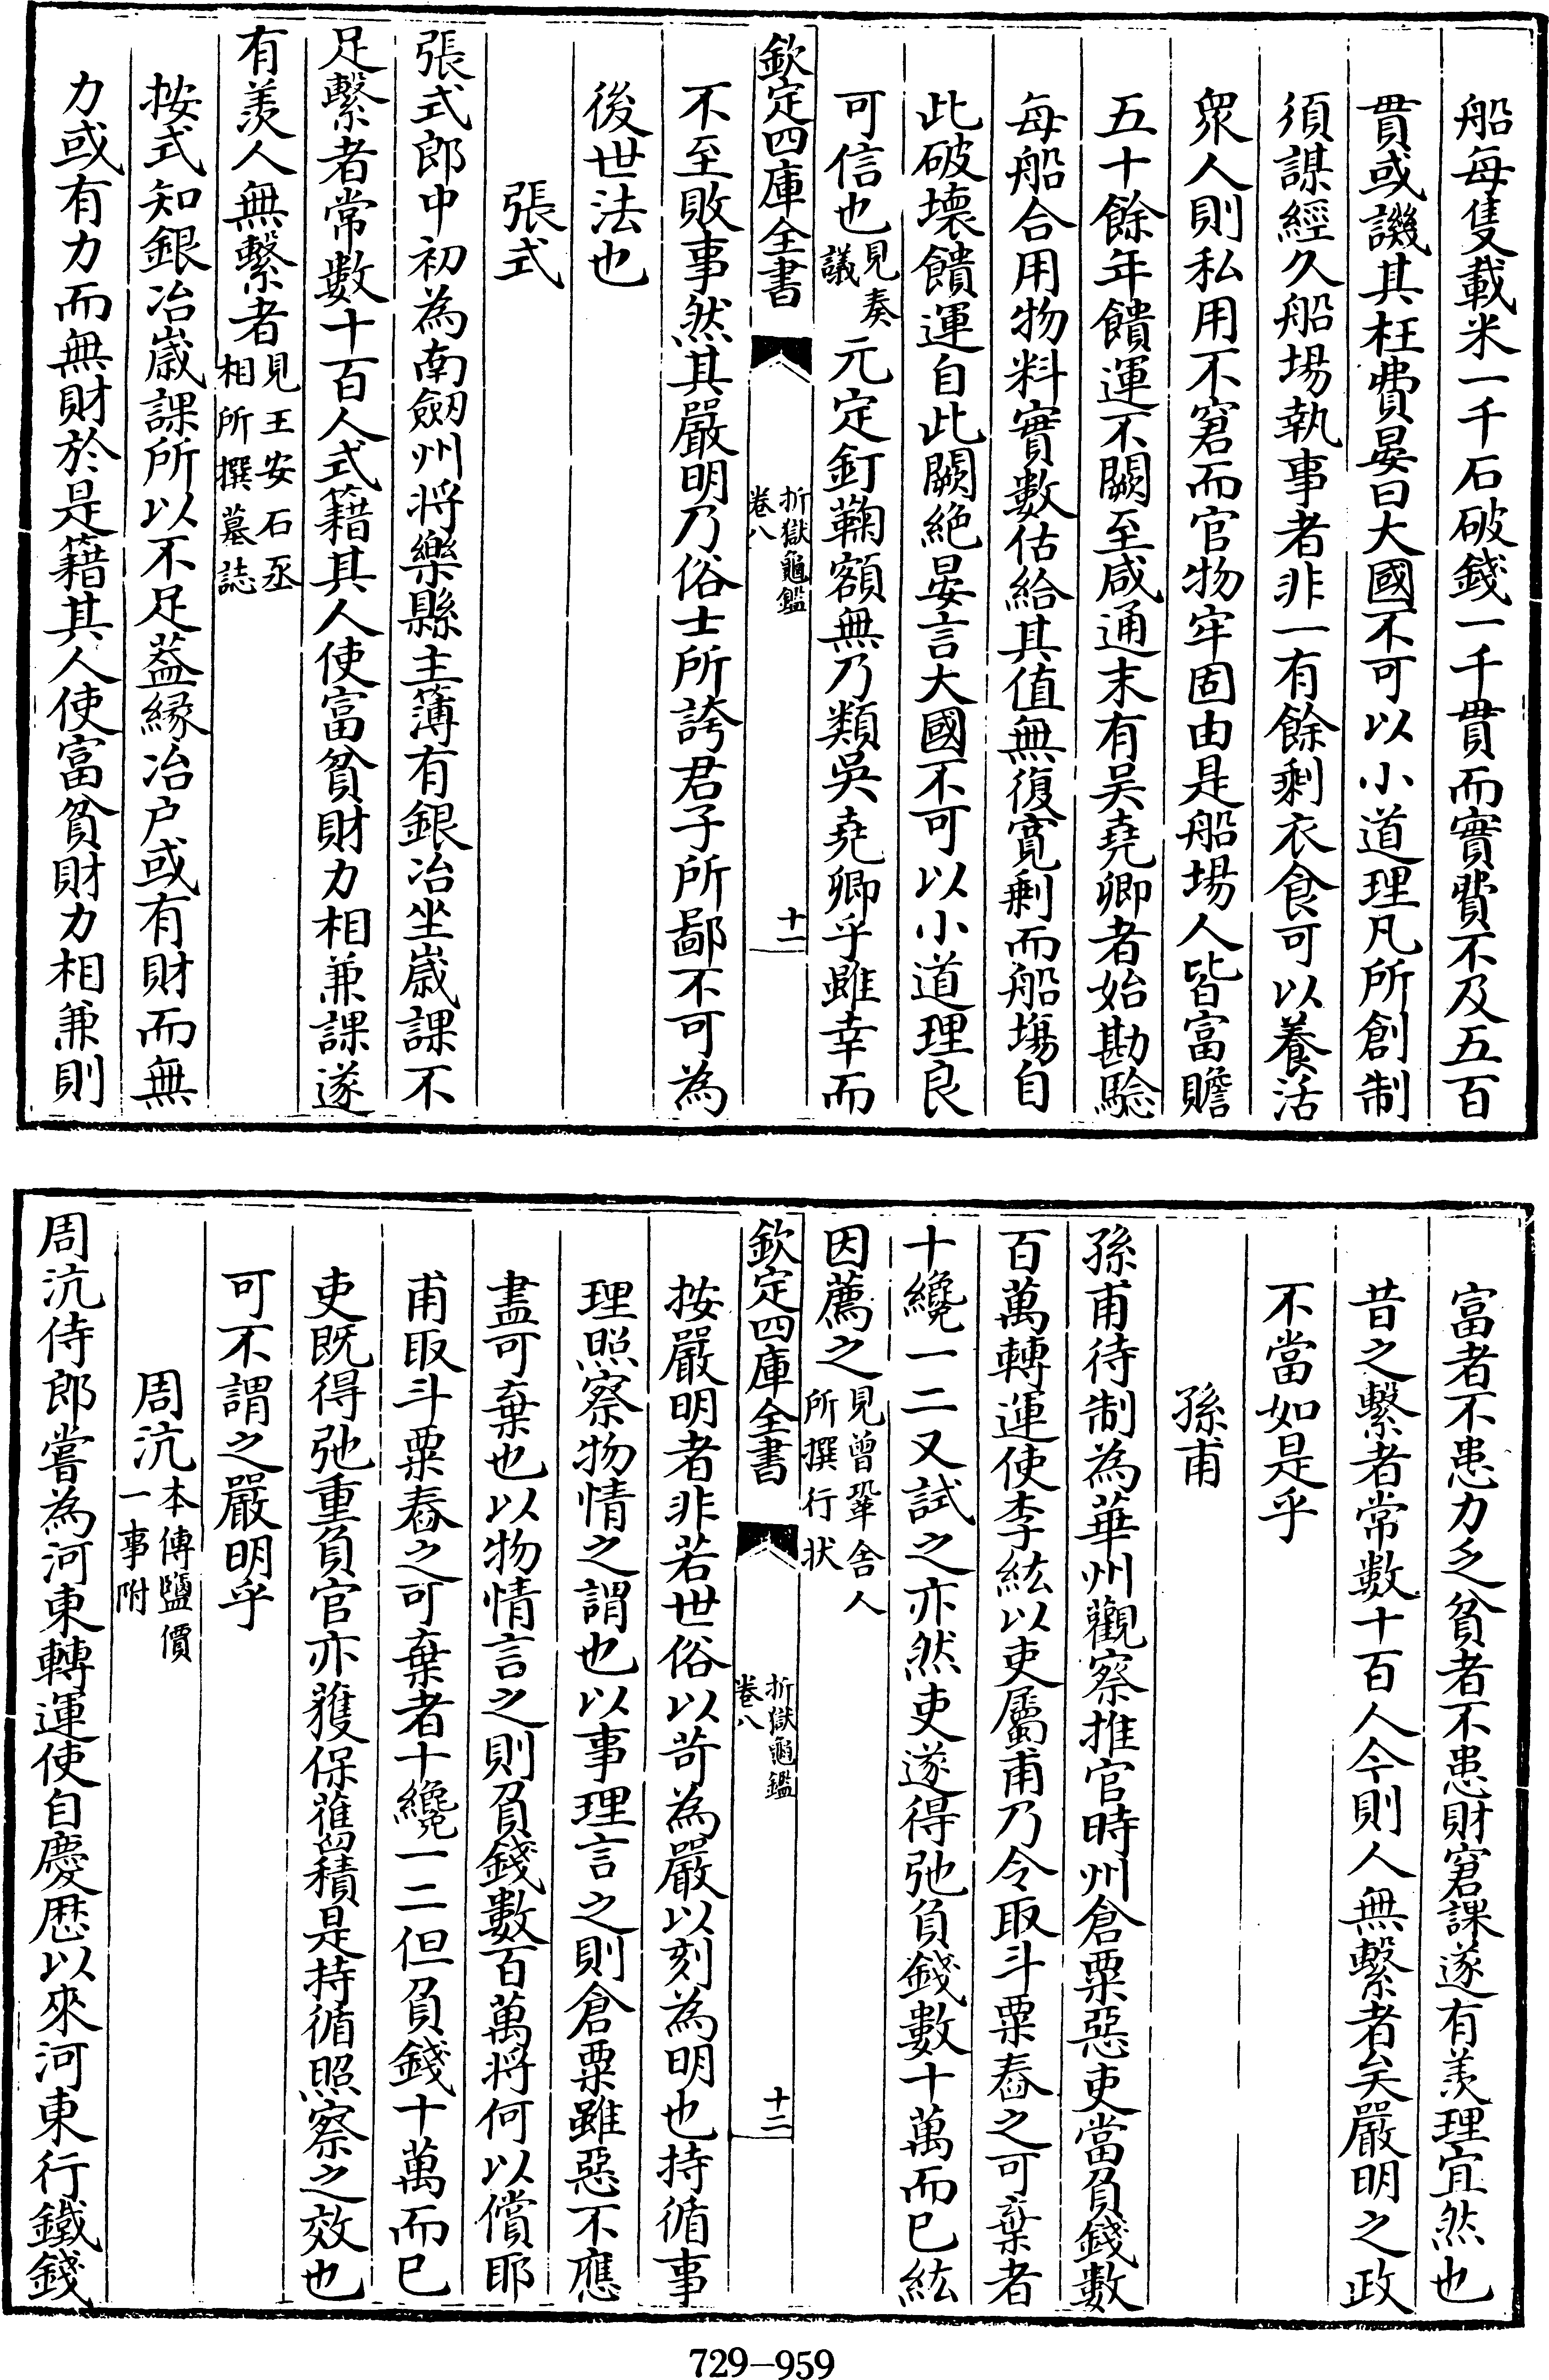 船每隻載米一千石破錢一千貫而實費不及五百
貫或譏其枉費晏曰大國不可以小道理凡所創制
須謀經久船場執事者非一有餘剩衣食可以養活
衆人則私用不窘而官物牢固由是船場人皆富贍
五十餘年饋運不闕至咸通末有吳堯卿者始勘驗
每船合用物料實數估給其值無復寛剩而船塲自
此破壞饋運自此闕絶晏言大國不可以小道理良
可信也見奏議元定釘鞠額無乃類吳堯卿乎雖幸而
欽定四庫全書 折獄龜鑑 卷八 十一
不至敗事然其嚴明乃俗士所誇君子所鄙不可為
後世法也
張式
張式郎中初為南劒州將樂縣主簿有銀冶坐嵗課不
足繫者常數十百人式籍其人使富貧財力相兼課遂
有羨人無繫者見王安石丞相所撰墓誌
按式知銀冶嵗課所以不足葢縁冶户或有財而無
力或有力而無財於是籍其人使富貧財力相兼則
富者不患力乏貧者不患財窘課遂有羨理宜然也
昔之繫者常數十百人今則人無繫者矣嚴明之政
不當如是乎
孫甫
孫甫待制為華州觀察推官時州倉粟惡吏當負錢數
百萬轉運使李紘以吏屬甫乃令取斗粟舂之可棄者
十纔一二又試之亦然吏遂得弛負錢數十萬而已紘
因薦之見曾鞏舍人所撰行状
欽定四庫全書 折獄龜鑑 卷八 十二
按嚴明者非若世俗以苛為嚴以刻為明也持循事
理照察物情之謂也以事理言之則倉粟雖惡不應
盡可棄也以物情言之則負錢數百萬將何以償耶
甫取斗粟舂之可棄者十纔一二但負錢十萬而已
吏既得弛重負官亦獲保舊積是持循照察之效也
可不謂之嚴明乎
周沆本傳鹽價一事附
周沆侍郎嘗為河東轉運使自慶歷以來河東行鐵錢
729—959